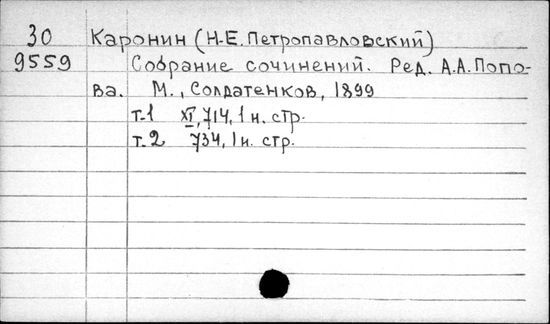 30 Каронин (Н.Е. Петропавловский)
9559 Собрание сочинений. Ред. А.А. Попо-
ва. М., Солдатенков, 1899
т.1 XI, 714, 1 н. стр.
т.2 734, 1 н. стр.